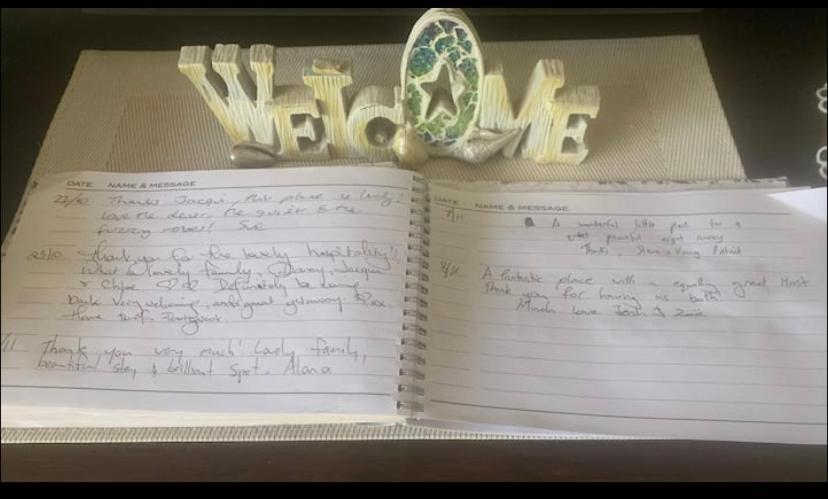 WELCOME
DATE NAME & MESSAGE
22/10 Thanks Jacqui, this place is lovely!
Love the decor, the quiet & the
fuzzy noses! Sue
23/10 Thank you for the lovely hospitality!!
What a lovely family, Jacqui
& Chloe Definitely be coming
back very welcoming, and great getaway. xxx
Home turf
/11 Thank you very much! Lovely family,
beautiful stay & brilliant spot. Alana
DATE NAME & MESSAGE
7/11 A wonderful little for a
peaceful night away
Thanks, Steve
8/11 A fantastic place with a equally great Host
Thank you for having us both.
Much love Josh &